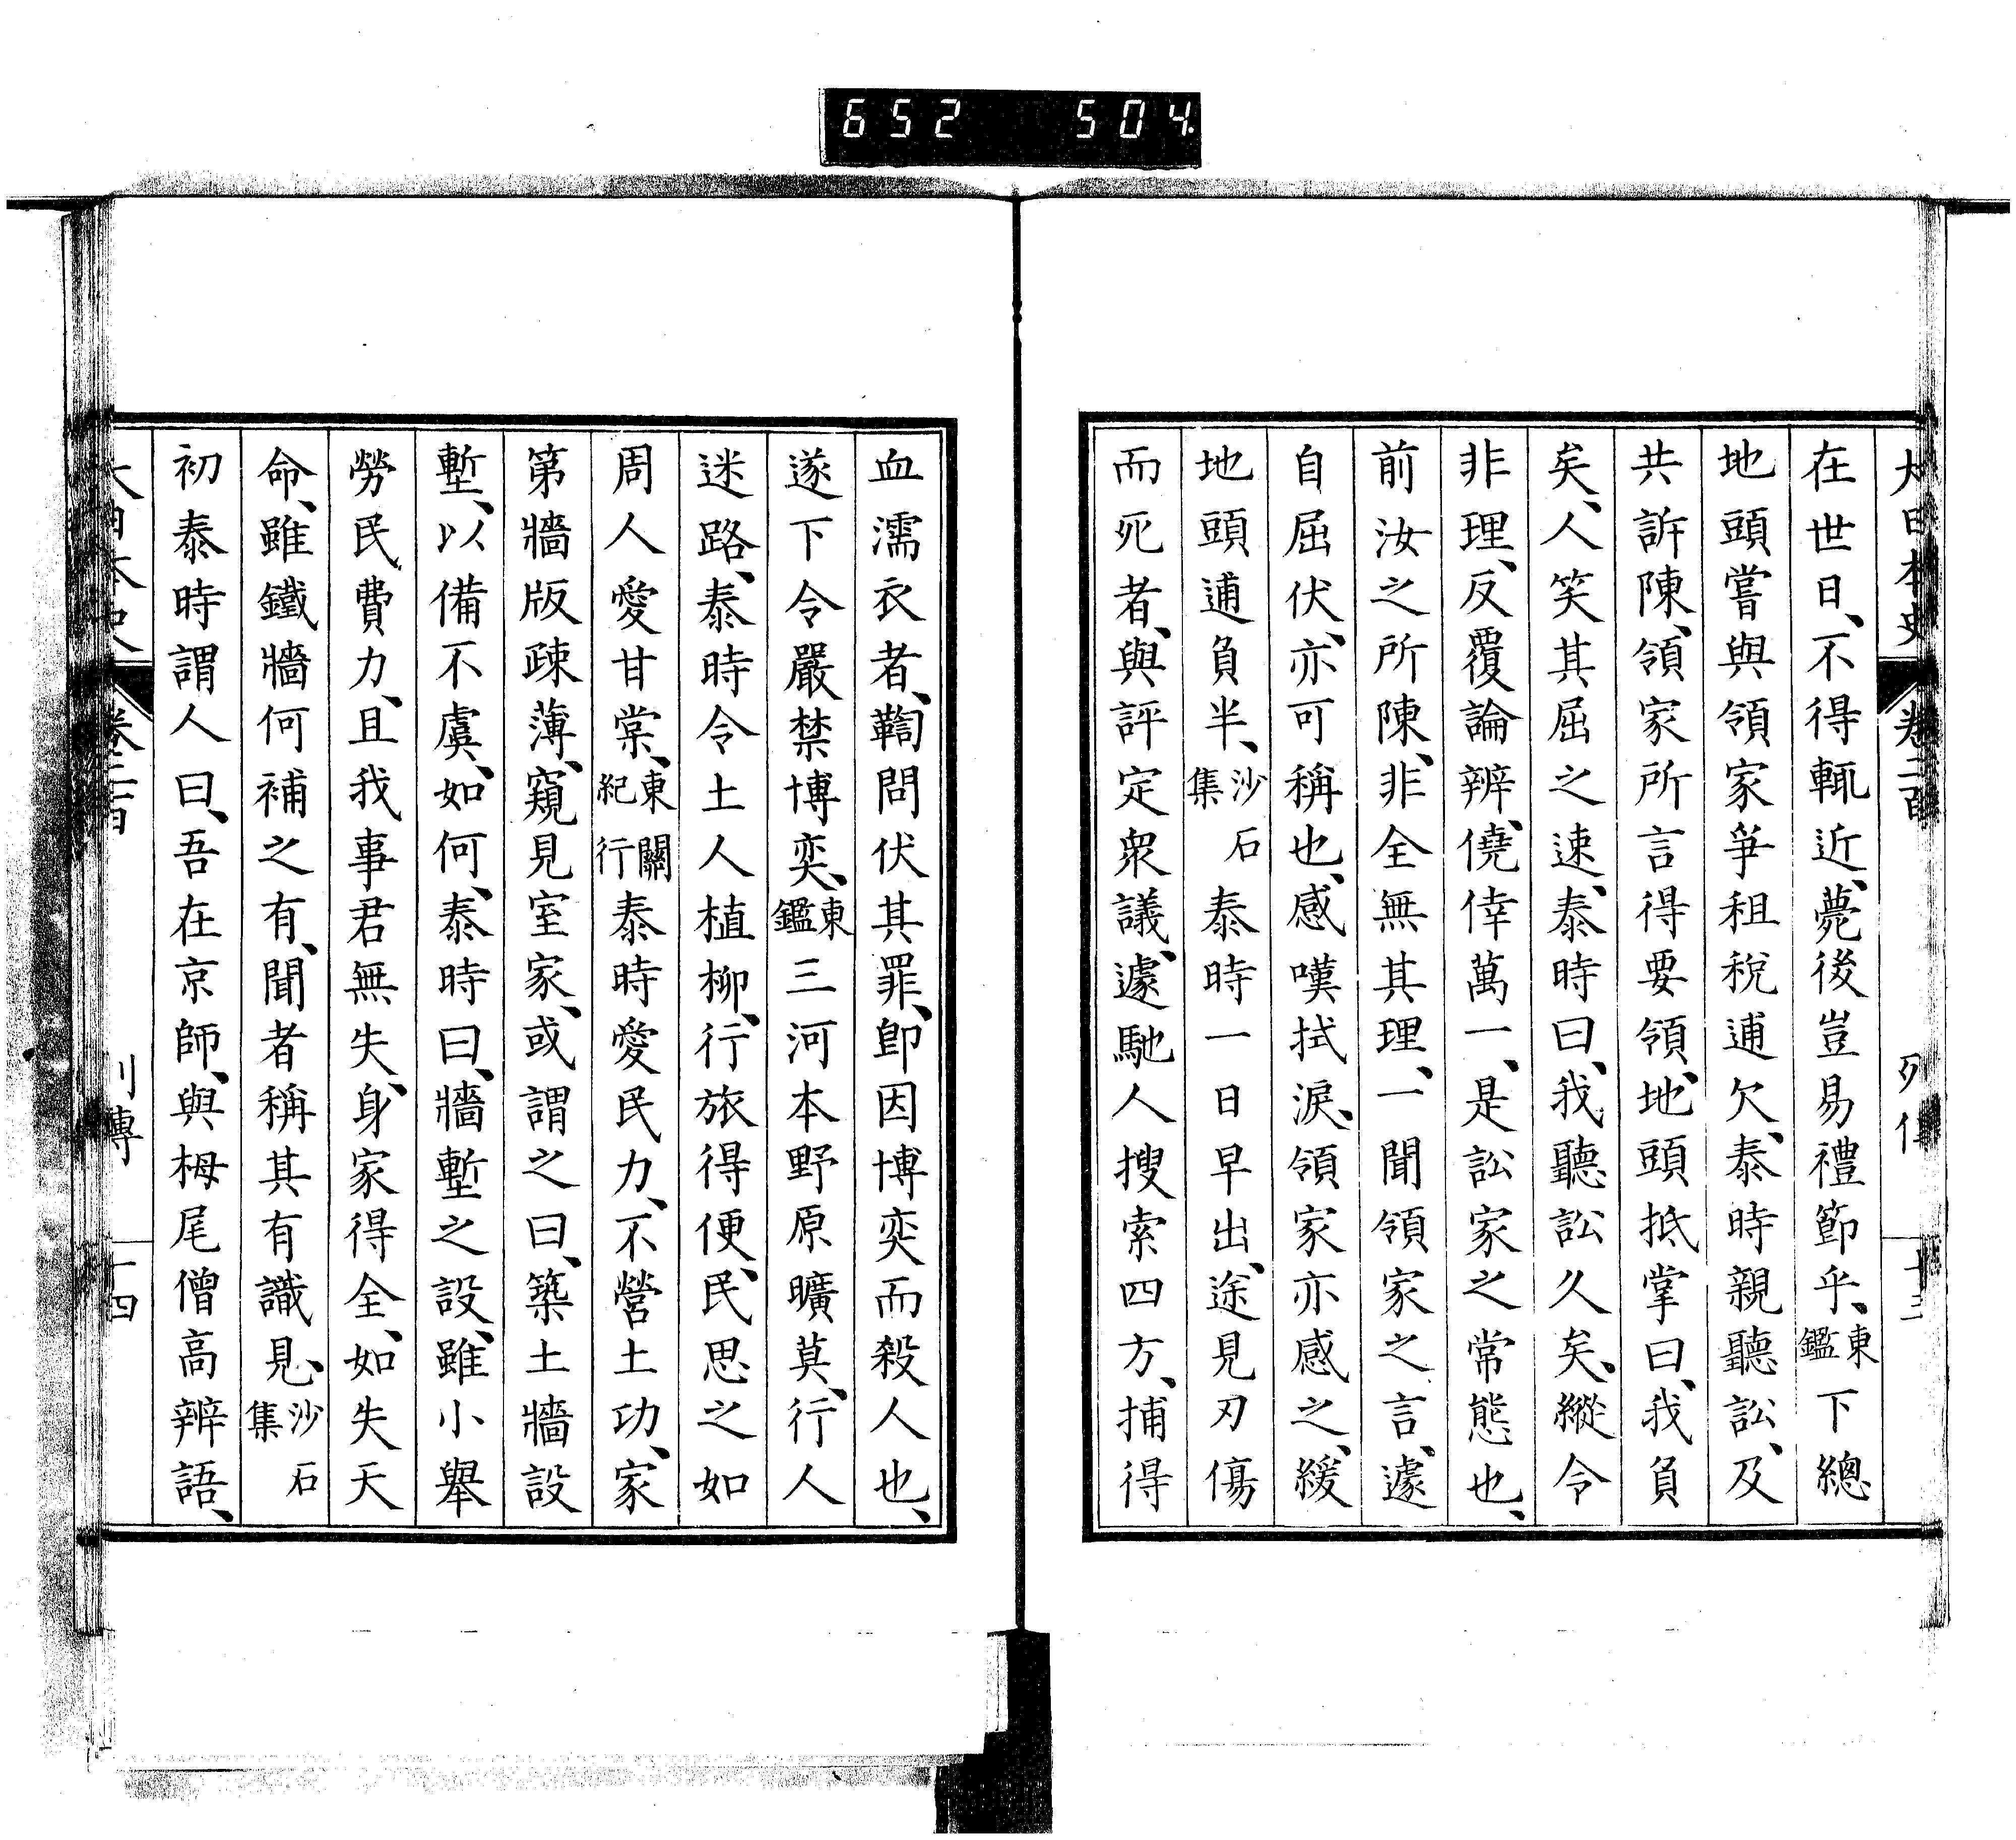 652 504
大日本史 卷二百 列傳 十三
在世日、不得輒近、薨後豈易禮節乎、東鑑下總
地頭嘗與領家爭租稅逋欠、泰時親聽訟、及
共訴陳、領家所言得要領、地頭抵掌曰、我負
矣、人笑其屈之速、泰時曰、我聽訟久矣、縱令
非理、反覆論辨、僥倖萬一、是訟家之常態也、
前汝之所陳、非全無其理、一聞領家之言、遽
自屈伏、亦可稱也、感嘆拭淚、領家亦感之、緩
地頭逋負半、沙石集泰時一日早出、途見刃傷
而死者、與評定眾議、遽馳人搜索四方、捕得
血濡衣者、鞫問伏其罪、卽因博奕而殺人也、
遂下令嚴禁博奕、東鑑三河本野原曠莫、行人
迷路、泰時令土人植柳、行旅得便、民思之如
周人愛甘棠、東關紀行泰時愛民力、不營土功、家
第牆版疎薄、窺見室家、或謂之曰、築土牆設
塹、以備不虞、如何、泰時曰、牆塹之設、雖小舉
勞民費力、且我事君無失、身家得全、如失天
命、雖鐵牆何補之有、聞者稱其有識見、沙石集
初泰時謂人曰、吾在京師、與栂尾僧高辨語、
大日本史 卷二百 列傳 十四